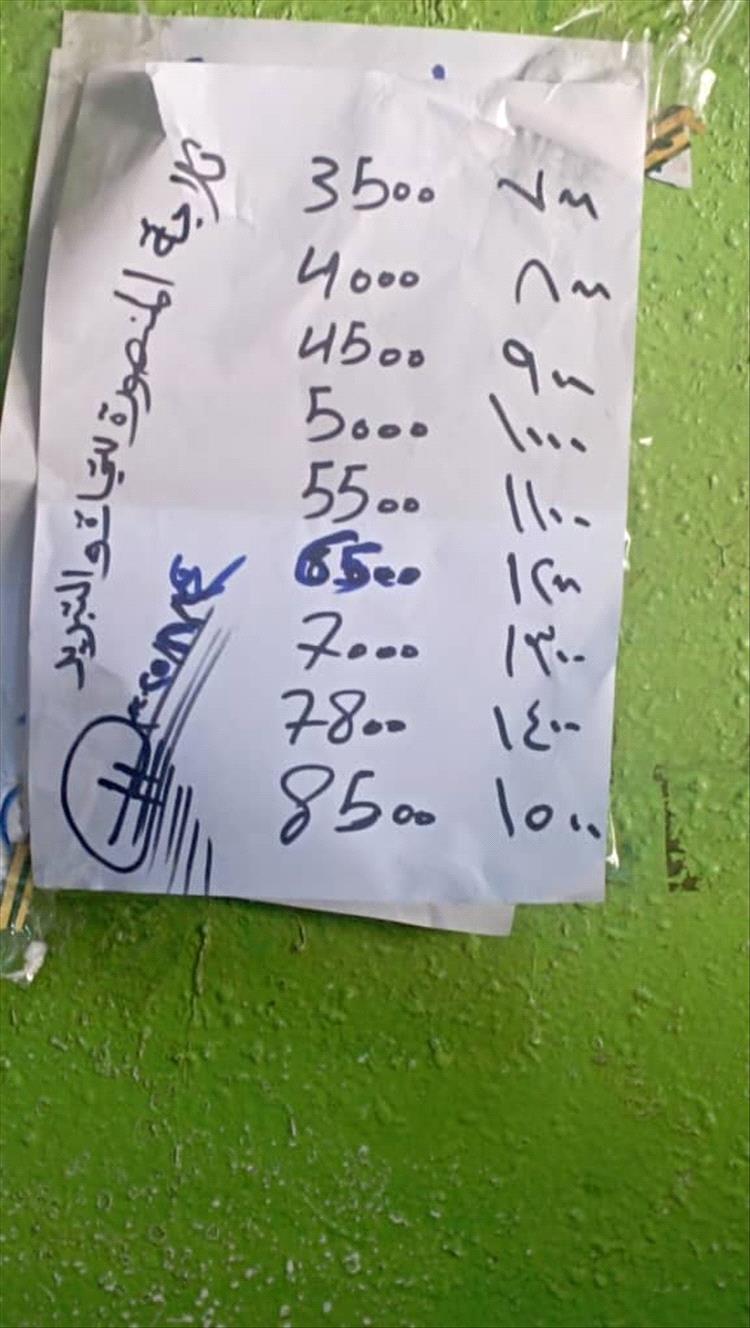 ثلاجة المنصورة للمياة والتبريد
3500 ٧٠٠
4000 ٨٠٠
4500 ٩٠٠
5000 ١٠٠٠
5500 ١١٠٠
6500 ١٢٠٠
7000 ١٣٠٠
7800 ١٤٠٠
8500 ١٥٠٠